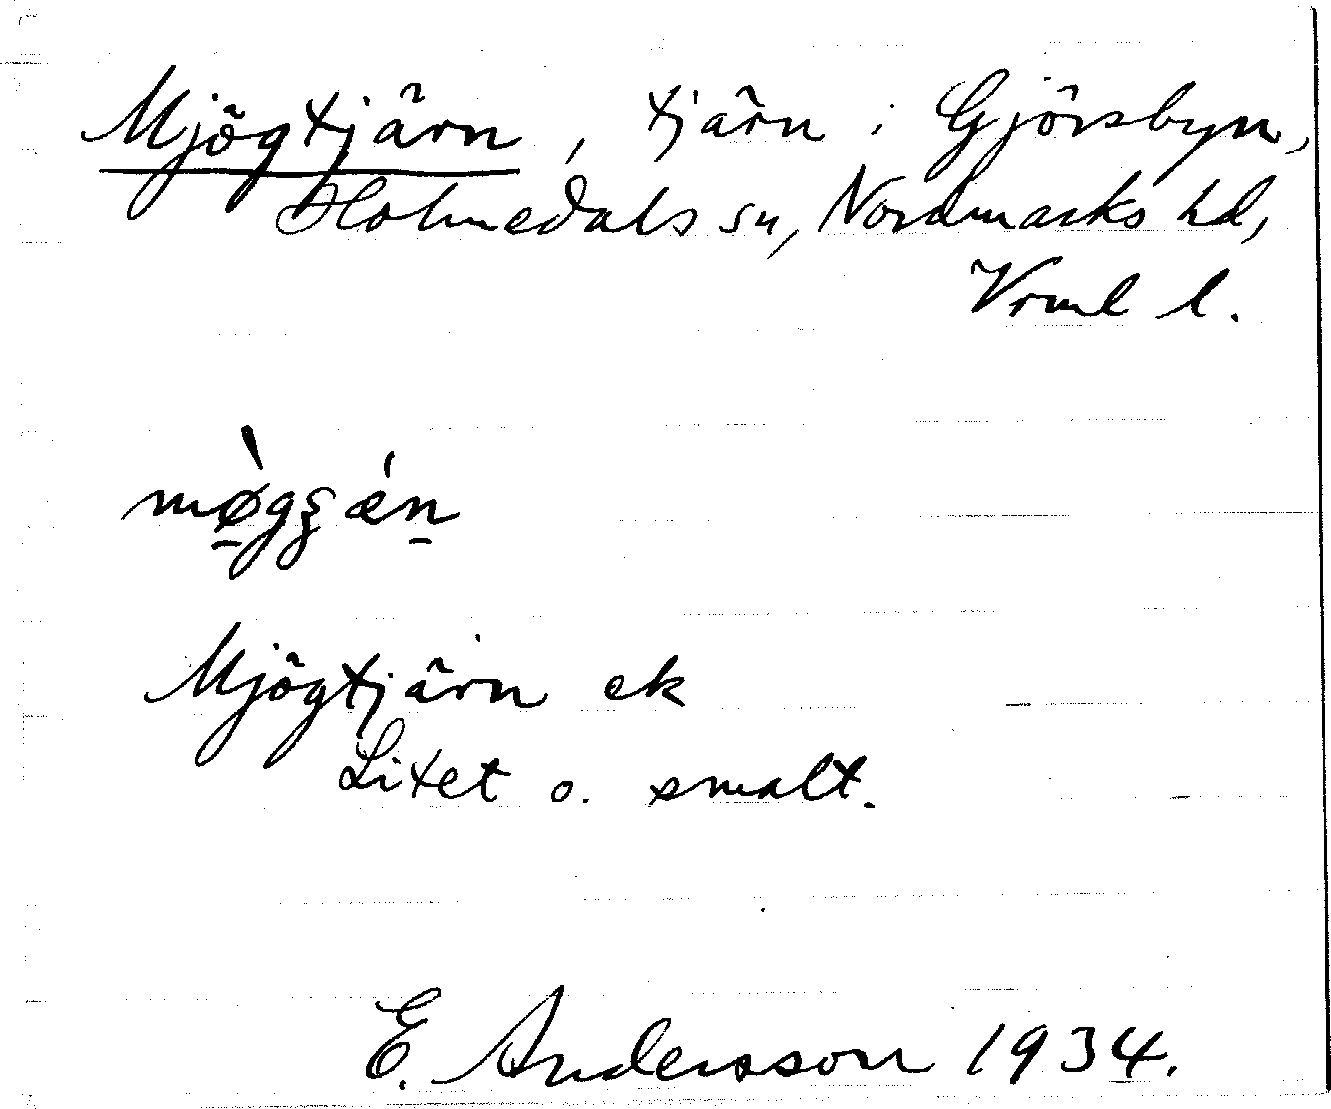 Mjögtjärn, tjärn i Gjörsbyn,
Holmedals sn, Nordmarks hd,
Vrml l.
mø̠̀gʒǽn̠
Mjögtjärn ek
Litet o. smalt.
E. Andersson 1934.